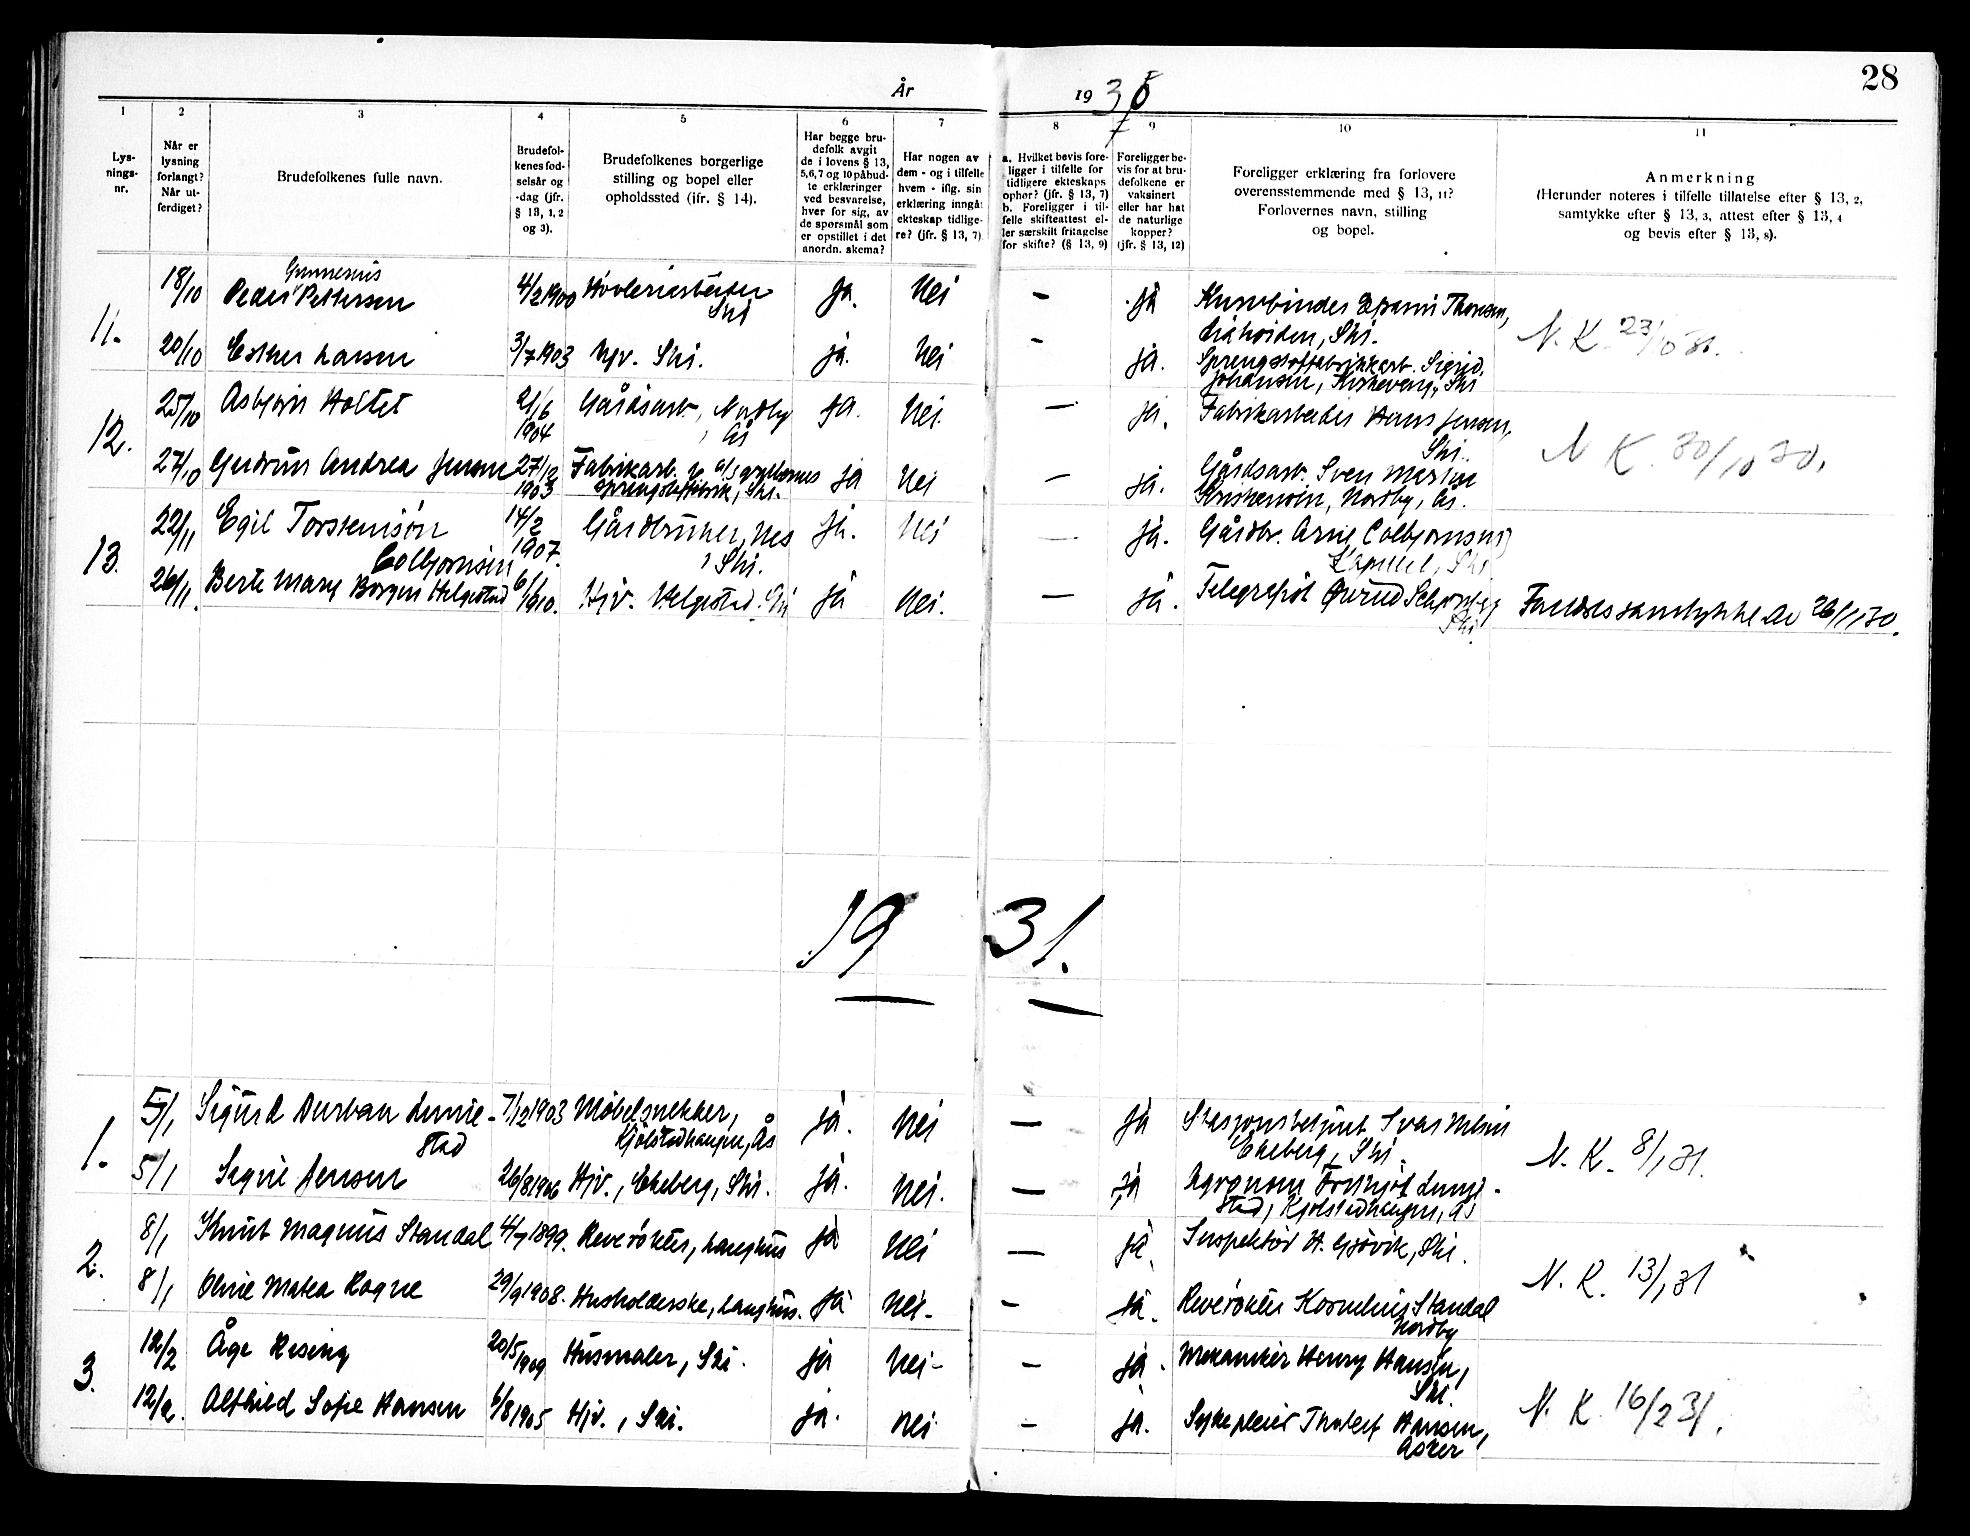 28
År 1930
1 2 3 4 5 6 7 8 9 10 11
Lysnings-nr.
Når er lysning forlangt? Når utferdiget?
Brudefolkenes fulle navn.
Brudefolkenes fødselsår og -dag (jfr. § 13, 1, 2 og 3).
Brudefolkenes borgerlige stilling og bopel eller opholdssted (ifr. § 14).
Har begge brudefolk avgit de i lovens § 13, 5, 6, 7 og 10 påbudte erklæringer ved besvarelse, hver for sig, av de spørsmål som er opstillet i det anordn. skema?
Har nogen av dem - og i tilfelle hvem - iflg. sin erklæring inngått ekteskap tidligere? (jfr. § 13, 7).
a. Hvilket bevis foreligger i tilfelle for tidligere ekteskaps ophør? (jfr. § 13, 7) b. Foreligger i tilfelle skifteattest eller særskilt fritagelse for skifte? (§ 13, 9)
Foreligger bevis for at brudefolkene er vaksinert eller har hat de naturlige kopper? (jfr. § 13, 12)
Foreligger erklæring fra forlovere overensstemmende med § 13, 11? Forlovernes navn, stilling og bopel.
Anmerkning (Herunder noteres i tilfelle tillatelse efter § 13, 2, samtykke efter § 13, 3, attest efter § 13, 4 og bevis efter § 13, 8).
11. 18/10 Peder Gunnerius Pettersen 4/2 1900 Høvleriarbeider Ski ja. Nei — ja Kurvbinder Thorsen, Ski.
20/10 Esther Larsen 3/7 1903 Hjv. Ski. ja. Nei — ja. Sprengstoffabrikkarb. Sigrid Johansen, Ski
N. K. 23/10 30.
12. 25/10 Asbjørn Holtet 21/6 1904 Gårdsarb., Nordby, Ås ja. Nei. — ja. Fabrikarbeider Hans Jensen, Ski.
27/10 Gudrun Andrea Jensen 27/12 1903 Fabrikarb. v. a/s Grubernes sprengstoffabrik, Ski. ja Nei — ja. Gårdsarb. Sven Martin Nordby, Ås.
N K. 30/10 30.
13. 22/11 Egil Torstensøn Colbjørnsen 14/2 1907. Gårdbruker, Nes, Ski. ja. Nei — ja. Gårdbr. Arne Colbjørnsen, Kapellet, Ski
26/11. Berte Mary Borgen Helgestad 6/1 1910. Hjv. Helgestad, Ski ja Nei. — ja. Telegrafist Ski.
Farens samtykke av 26/11 30.
1931.
1. 5/1 Sigurd Durban Lunnestad 7/12 1903 Møbelsnekker, Kjølstadhaugen, Ås ja. Nei — ja Stasjonsbetjent Ivar Nilsen Ekeberg, Ski.
5/1 Signe Jensen 26/8 1906 Hjv., Ekeberg, Ski. ja. Nei. — ja Agronom Frithjof Lunnestad, Kjølstadhaugen, Ås
N. K. 8/1 31.
2. 8/1 Knut Magnus Standal 4/7 1899. Reverøkter, Langhus ja Nei — ja. Inspektør H. Gjøvik, Ski.
8/1 Oline Matea Rogne 29/9 1908. Husholderske, Langhus. ja Nei - — ja. Reverøkter Kornelius Standal Nordby
N. K. 13/1 31
3. 12/2 Åge Rising 20/5 1909 Husmaler, Ski. ja Nei - — ja. Mekaniker Henry Hansen, Ski.
12/2. Alfhild Sofie Hansen 6/8 1905 Hjv., Ski. ja. Nei — ja. Sykepleier Hansen, Asker
N. K. 16/2 31.